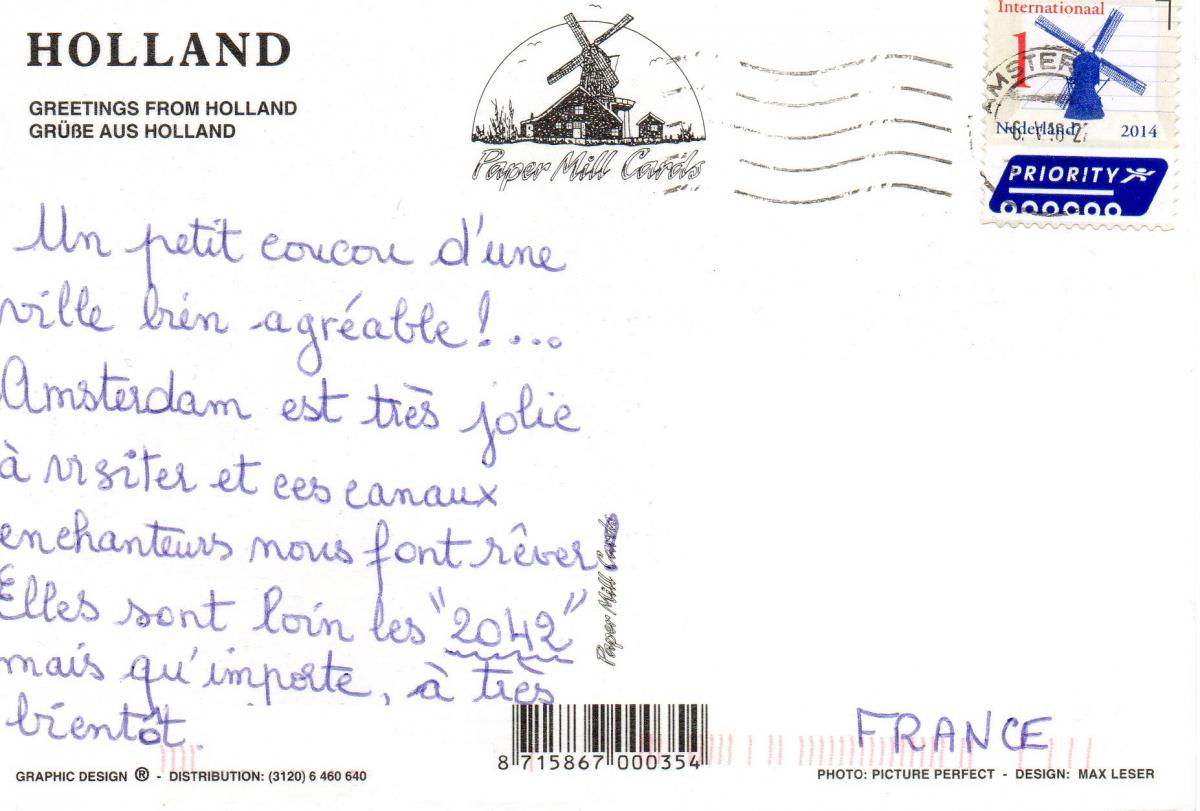 HOLLAND
GREETINGS FROM HOLLAND
GRÜßE AUS HOLLAND
Paper Mill Cards
Internationaal
1
AMSTER
Nederland 2014
PRIORITY
Un petit coucou d'une
ville bien agréable !...
Amsterdam est très jolie
à visiter et ces canaux
enchanteurs nous font rêver !
Elles sont loin les "2042"
mais qu'importe, à très
bientôt.
Paper Mill Cards
FRANCE
8 715867 000354
GRAPHIC DESIGN ® - DISTRIBUTION: (3120) 6 460 640
PHOTO: PICTURE PERFECT - DESIGN: MAX LESER